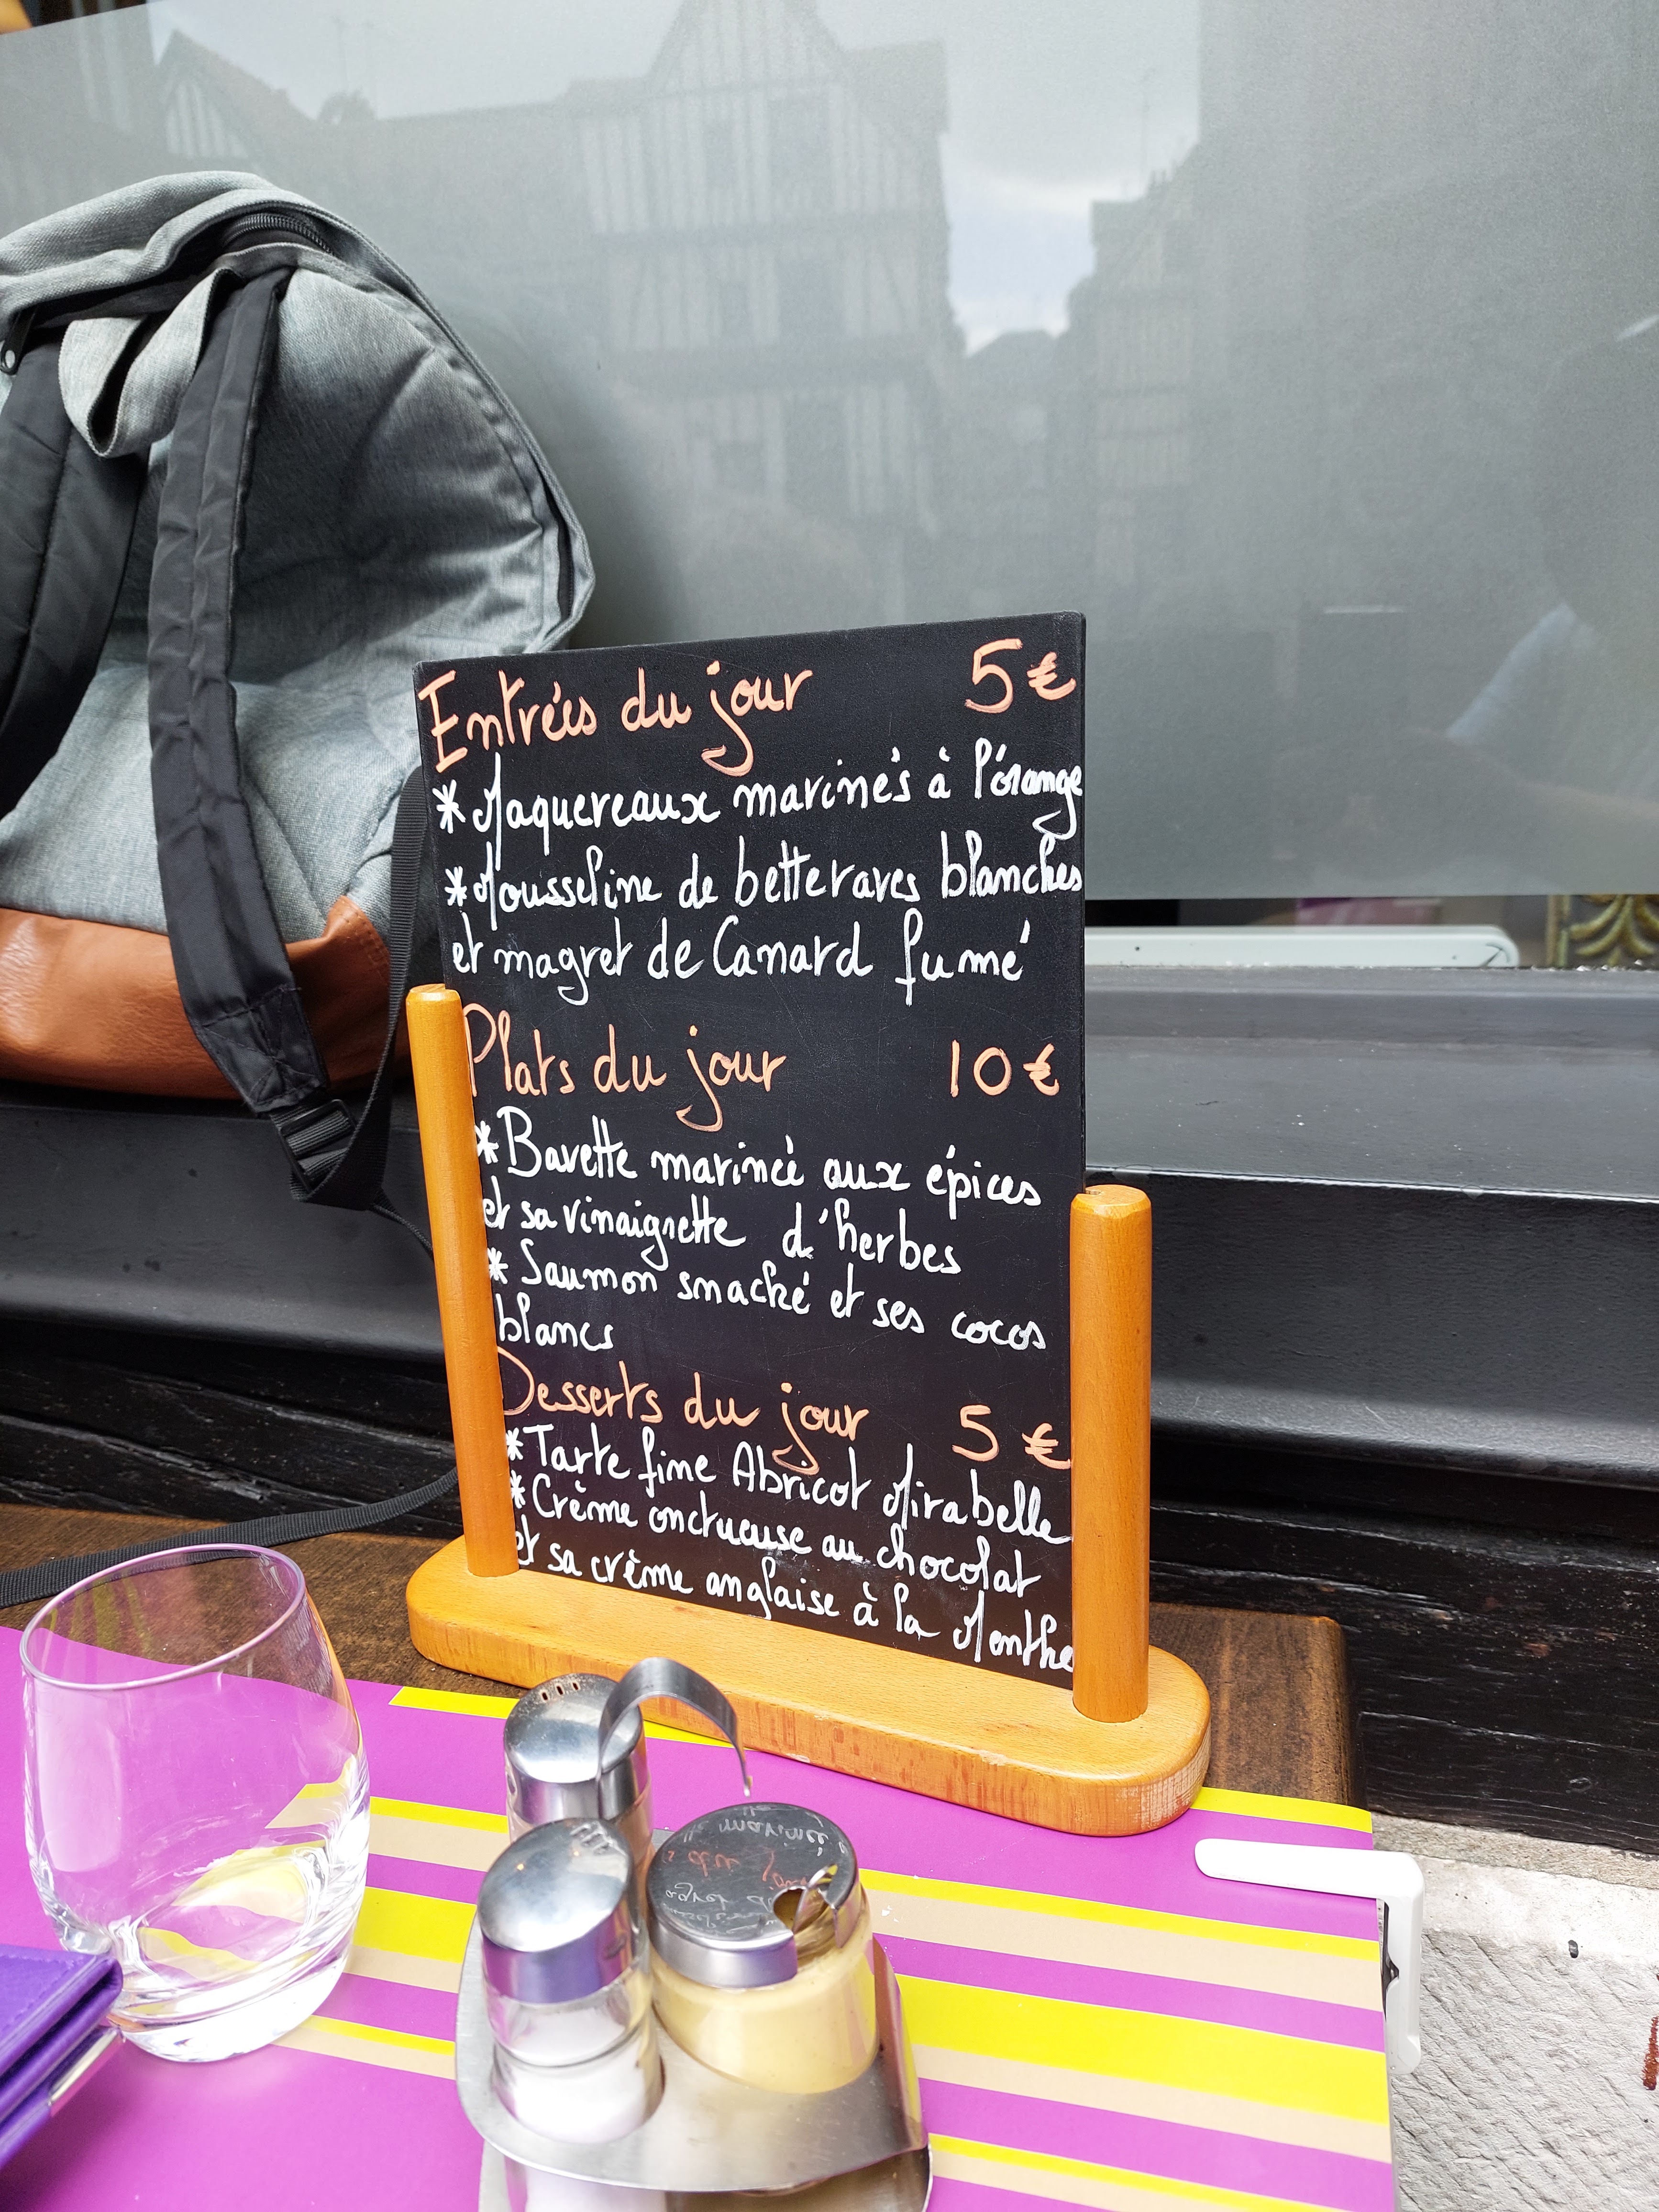 Entrées du jour 5€
* Maquereaux marinés à l'orange
* Mousseline de betteraves blanches
et magret de Canard fumé
Plats du jour 10€
* Bavette marinée aux épices
et sa vinaigrette d'herbes
* Saumon snacké et ses cocos
blancs
Desserts du jour 5€
* Tarte fine Abricot Mirabelle
* Crème onctueuse au chocolat
et sa crème anglaise à la Menthe